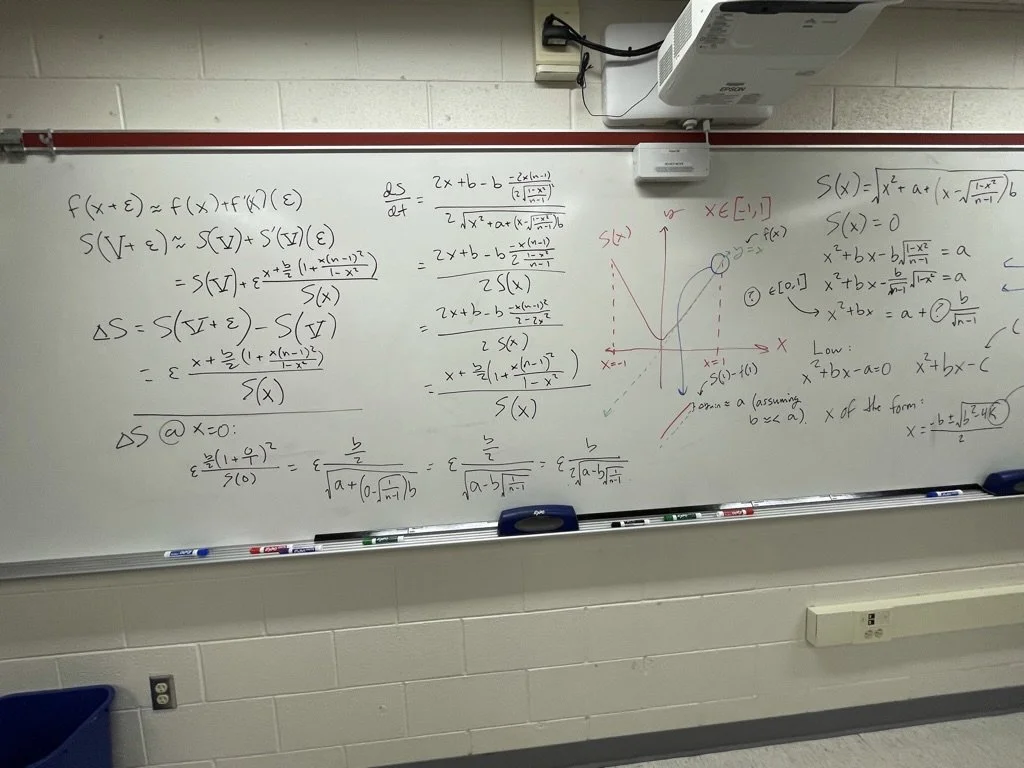 f(x+ε) ≈ f(x)+f'(x)(ε)
S(V+ε) ≈ S(V)+S'(V)(ε)
= S(V)+ε (x+b/2(1+x(n-1)²/(1-x²)))/S(x)
ΔS = S(V+ε)-S(V)
= ε (x+b/2(1+x(n-1)²/(1-x²)))/S(x)
ΔS @ x=0:
ε (b/2(1+0/1)²)/S(0) = ε (b/2)/√(a+(0-√(1/(n-1)))b) = ε (b/2)/√(a-b√(1/(n-1))) = ε b/(2√(a-b√(1/(n-1))))
dS/dt = (2x+b-b (-2x(n-1))/(2√((1-x²)/(n-1))))/(2√(x²+a+(x-√((1-x²)/(n-1)))b))
= (2x+b-b (-x(n-1))/(2 (1-x²)/(n-1)))/(2S(x))
= (2x+b-b (-x(n-1)²)/(2-2x²))/(2S(x))
= (x+b/2(1+x(n-1)²/(1-x²)))/S(x)
x∈[-1,1]
S(x)
f(x)
y=x
x=-1
x=1
x
S(1)-f(1)
≈ a (assuming
b << a).
S(x)=√(x²+a+(x-√((1-x²)/(n-1)))b
S(x)=0
x²+bx-b√((1-x²)/(n-1)) = a
x²+bx-b/√(n-1) √(1-x²) = a
? ∈[0,1]
x²+bx = a+? b/√(n-1)
Low:
x²+bx-a=0
x²+bx-c
x of the form:
x= (-b±√(b²-4
2
EPSON